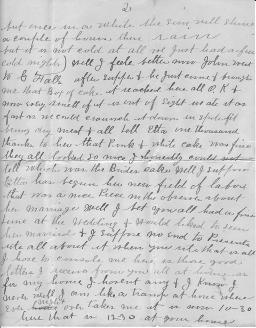 2
but once in a while the sun will shine
a couple of hours then rain
but it is not cold at all we just had a few
cold nights) well I feele better now John went
to C Hall after supper & he just come & brings
me that Box of cake it reached here all O.K &
now very smell of it is out of sight we ate it as
fast as we could crowd it down in spite of
being dry most & all tell Etta one thousand
thanks to her that Pink & white cake was fine
they all looked so nice I honestly could not
tell which was the Brides Cake well I suppose
Etta has begun her new field of labor
that was a nice Piece in the observer about
her marriage well I bet you all had a fine
time at the Wedding & Would liked to seen
her married & I suppose me send to Presents
write all about it when you write that is all
I have to console me here is those good
letters I receive from you all at home as
for my home I havent any & I know I
never will I am like a tramp at home where
ever night over takes me it is now 10-30
here that is 12.30 at your home